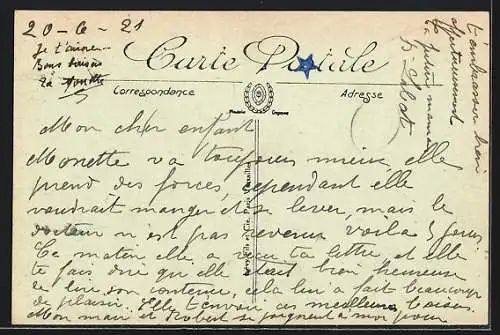 20-6-21
Je t'aime
Bons baisers
t'embrasser bien
affectueusement
ta petite maman
Carte Postale
Correspondance
Adresse
Mon cher enfant
Monette va toujours mieux elle
prend des forces, cependant elle
voudrait manger et se lever, mais le
docteur n'est pas revenu voila 5 jours.
Ce matin elle a reçu ta lettre, et elle
te fais dire qu'elle était bien heureuse
de lire son contenue, cela lui a fait beaucoup
de plaisir. Elle t'envoie ses meilleurs baisers.
Mon mari et Robert se joignent a moi pour